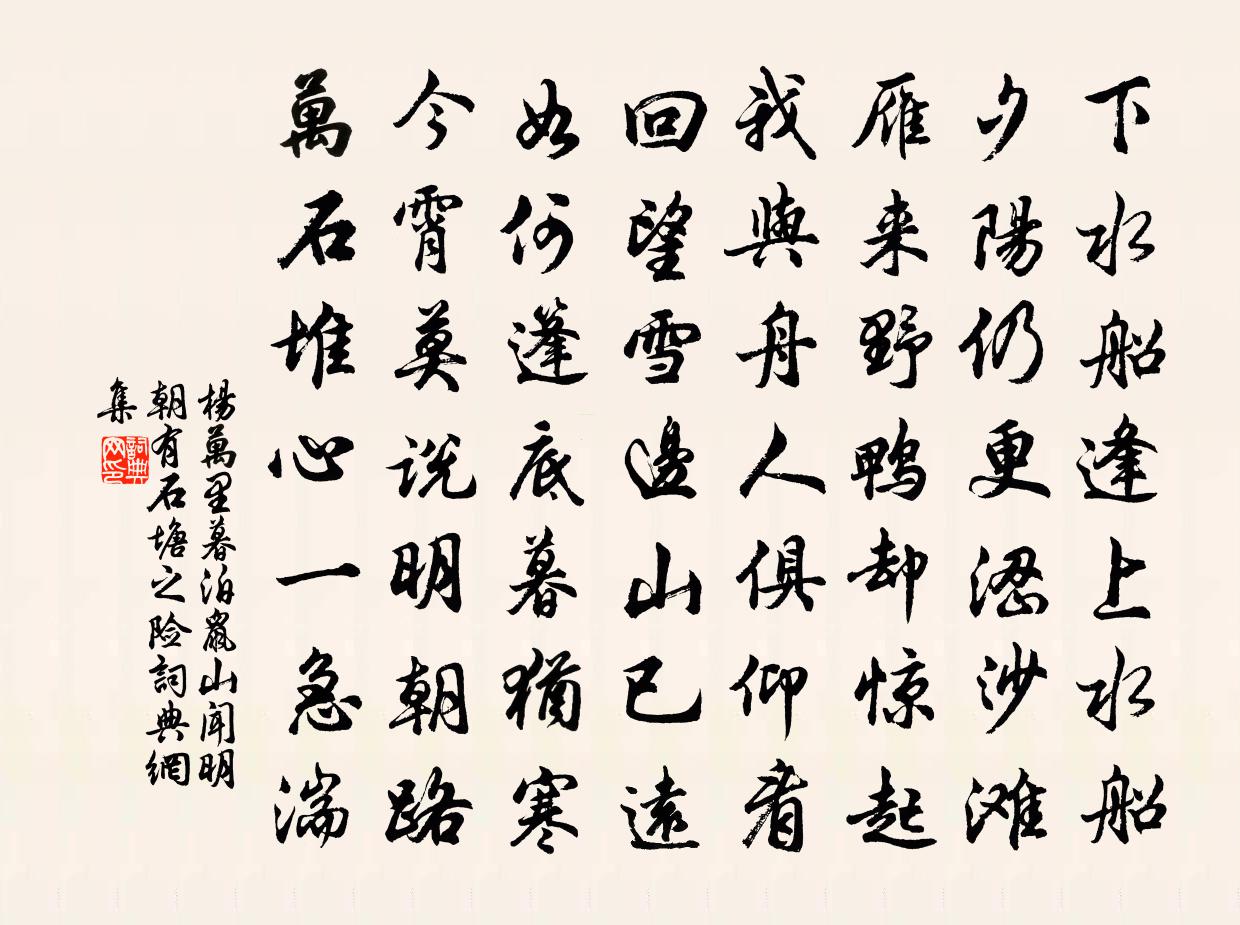 下水船逢上水船
夕陽仍更澀沙滩
雁来野鴨却惊起
我與舟人俱仰看
回望雪邊山已遠
如何蓬底暮猶寒
今霄莫説明朝路
萬石堆心一急湍
楊萬里暮泊鼠山闻明
朝有石塘之险詞典網
集
詞典网印